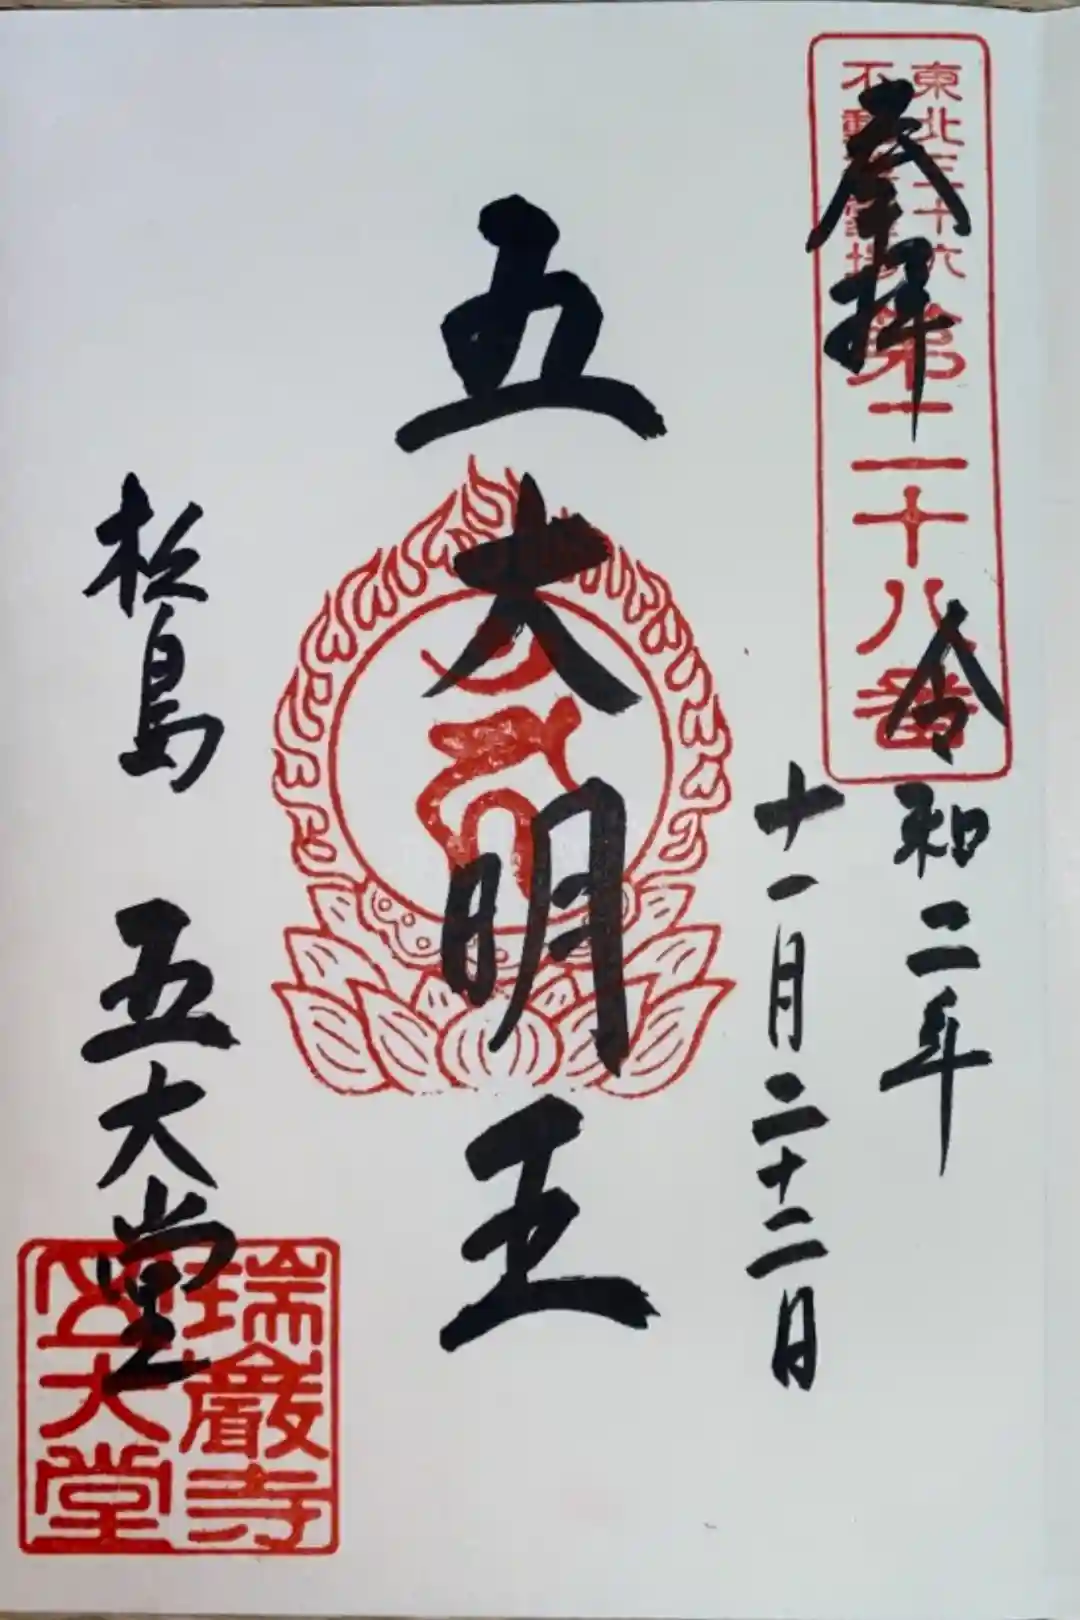 東北三十六
不動尊霊場
第二十八番
奉拝
令和二年
十一月二十二日
五大明王
松島 五大堂
瑞巖寺
五大堂